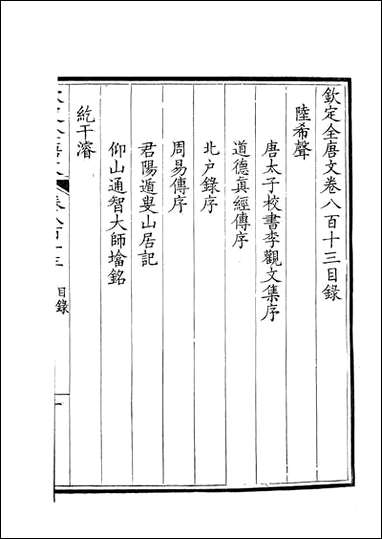 欽定全唐文卷八百十三目錄
陸希聲
唐太子校書李觀文集序
道德真經傳序
北户錄序
周易傳序
君陽遁叟山居記
仰山通智大師塔銘
紇干濬
目錄